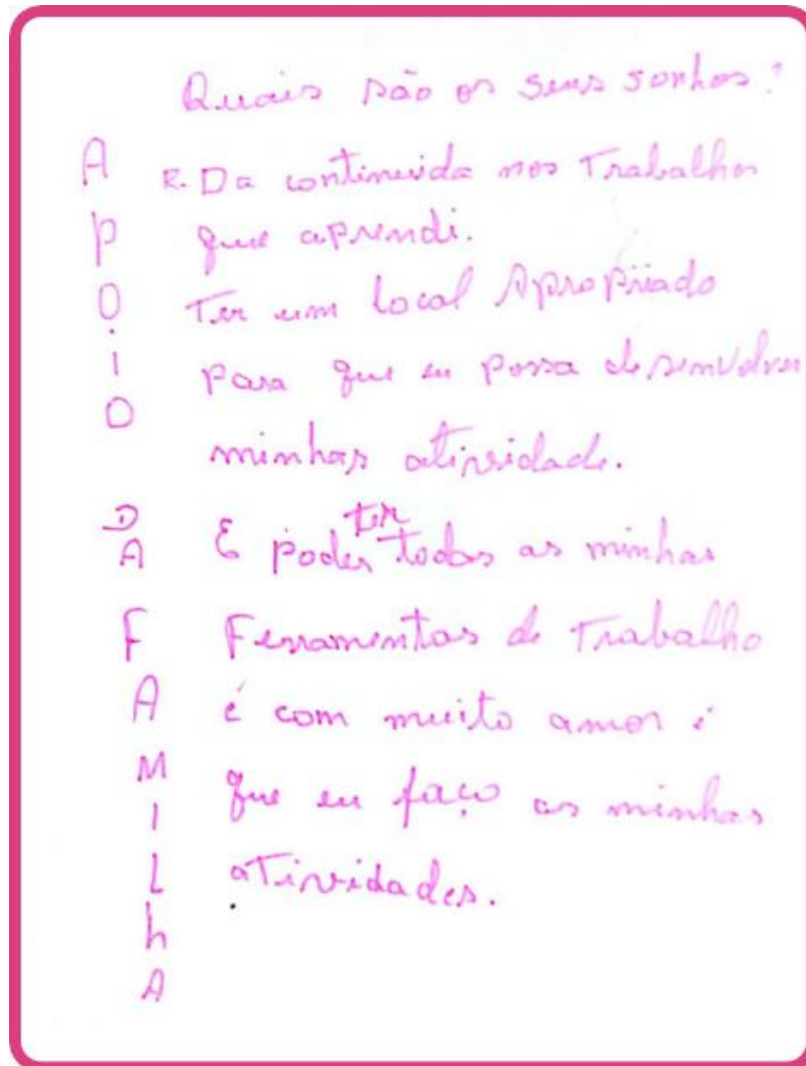 Quais são os seus sonhos?
R. Da continuida nos Trabalhos
que aprendi.
Ter um local Apropriado
para que eu possa desenvolver
minhas atividade.
E poder ter todas as minhas
Ferramentas de Trabalho
é com muito amor é
que eu faço as minhas
atividades.
APOiO
DA
FAMILhA